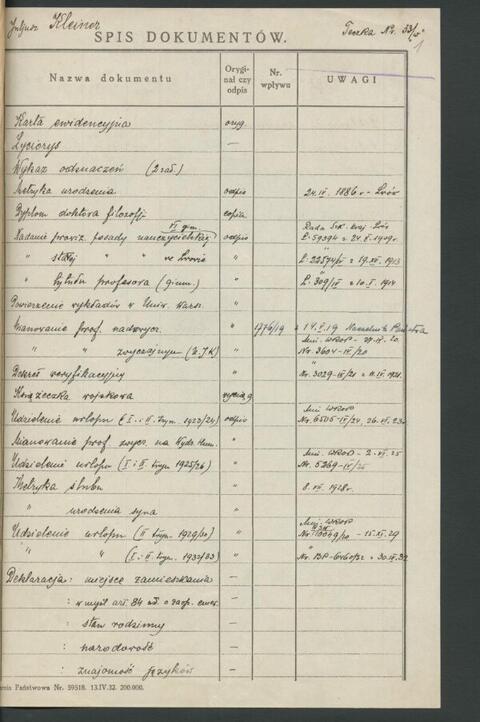 Juljusz Kleiner
Teczka Nr. 33/5
1
SPIS DOKUMENTÓW.
Nazwa dokumentu Orygi-nał czy odpis Nr. wpływu UWAGI
Karta ewidencyjna oryg.
Życiorys —
Wykaz odznaczeń (2 zał.) —
Metryka urodzenia odpis 24.IV. 1886 r. Lwów
Dyplom doktora filozofji copia
Nadanie prowiz. posady nauczycielskiej VI gim. odpis Rada Szk. kraj. Lwów L. 59394 z 24.X.1909 r.
" stałej " " we Lwowie " L. 22574/IV z 19.XII.1913
" tytułu profesora (gimn.) " L. 309/IV z 10.I.1914
Powierzenie wykładów w Uniw. Warsz.
Mianowanie prof. nadzwycz. " 1776/19 z 14.X.19 Naczelnik Państwa
" " zwyczajnym (U.J.K) " Min. WROP - 20. Nr. 3604-IV/20
Dekret weryfikacyjny " Nr. 3029-IV/21 z 11.IV.1921.
Książeczka wojskowa wyciąg
Udzielenie urlopu (I i II trym. 1923/24) odpis Min. WROP Nr. 6505-IV/24, 26.VII.23
Mianowanie prof. zwycz. na Wydz. Hum. "
Udzielenie urlopu (I i II trym 1925/26) " Min. WROP - 2.VII.25 Nr. 5269-IV/25
Metryka ślubu " 8.VII.1928 r.
" urodzenia syna "
Udzielenie urlopu (II trym. 1929/30) " Min. WROP Nr. 10049/30 - 15.XI.29
" " (I i II trym. 1932/33) " Nr. BP-6460/32 z 30.IV.32
Deklaracja: miejsce zamieszkania —
: w myśl art. 84 ust. o zaop. emer. —
: stan rodzinny —
: narodowość —
: znajomość języków —
nia Państwowa Nr. 59518. 13.IV.32. 200.000.